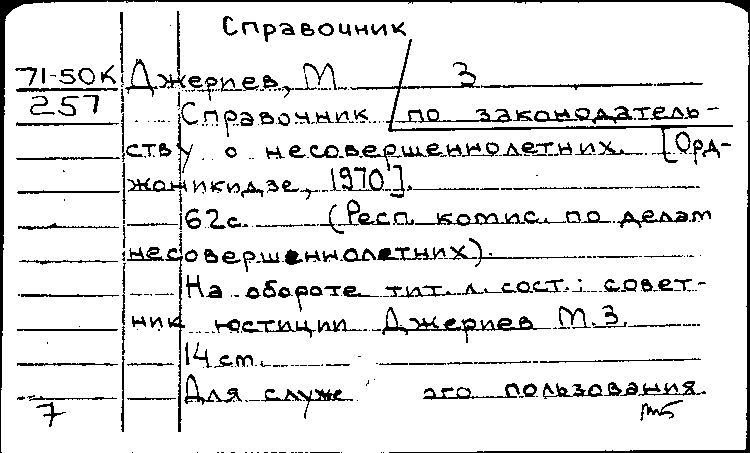 Справочник
71-50К Джериев, М З
257 Справочник по законодатель-
ству о несовершеннолетних. [Орд-
жоникидзе, 1970].
62с. (Респ. комис. по делам
несовершеннолетних).
На обороте тит. л. сост.: совет-
ник юстиции Джериев М.З.
14 см.
Для служе ого пользования.
7